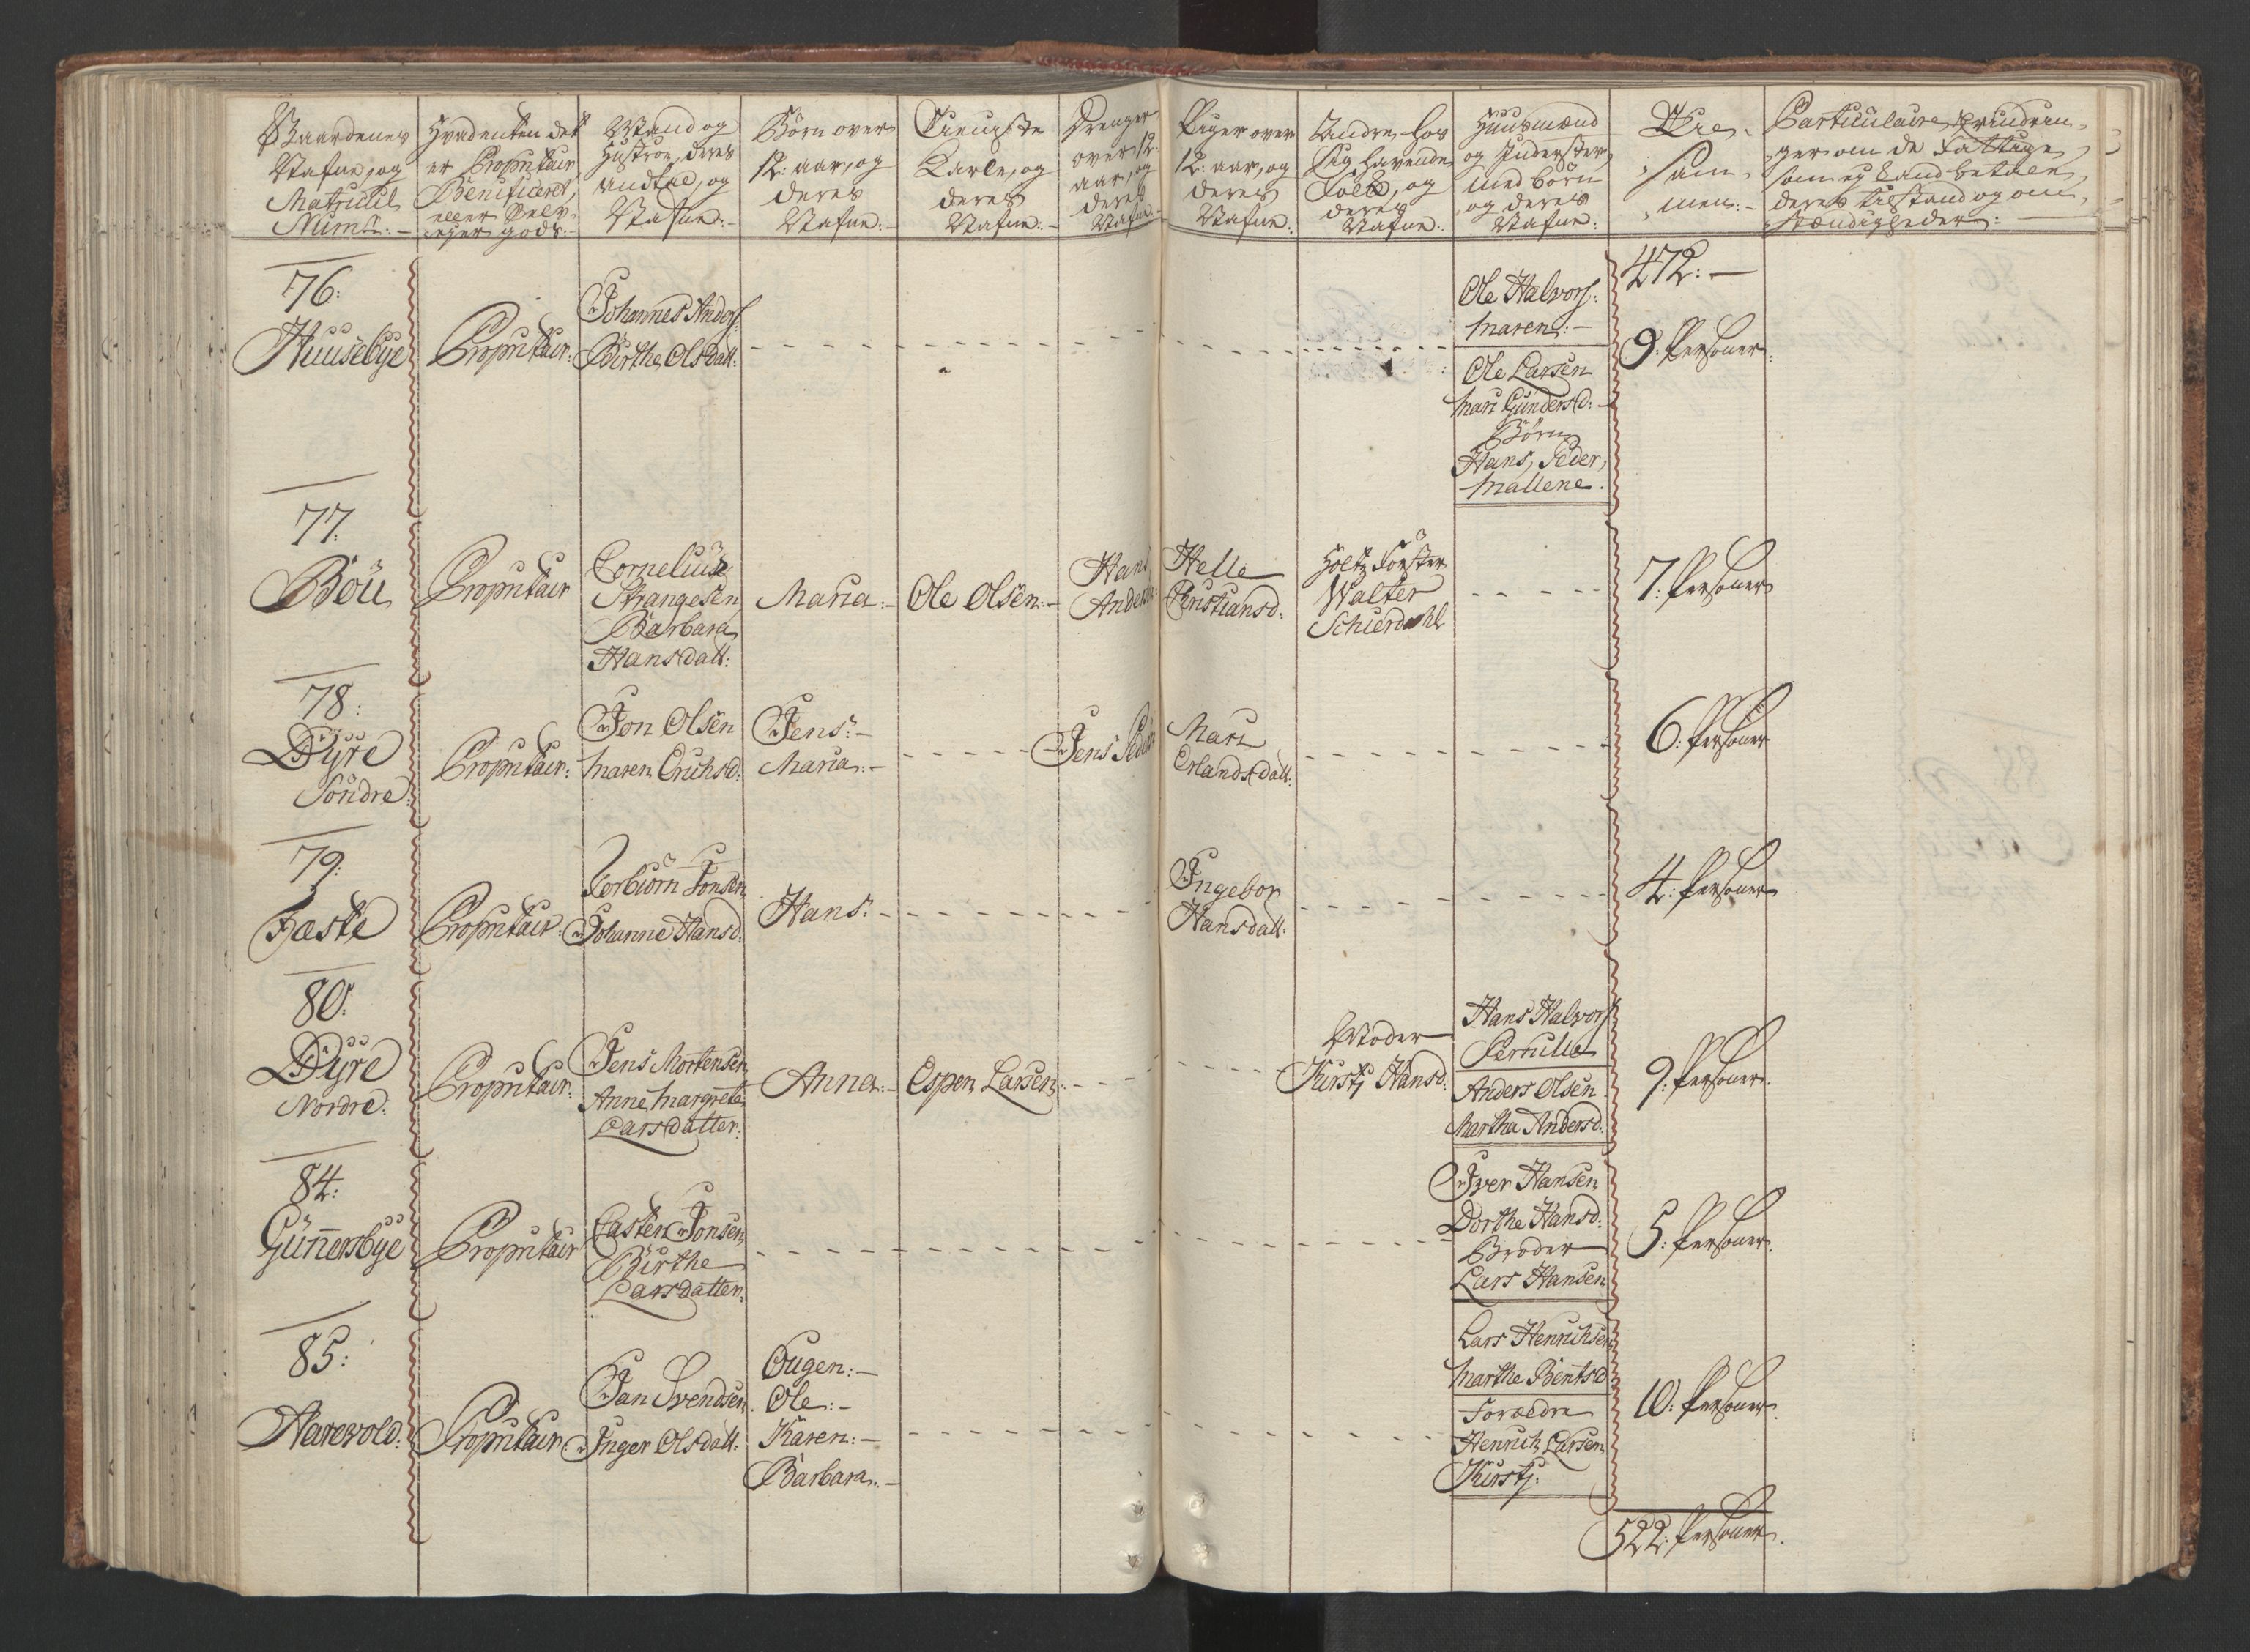 Gaardenes
Nafne, og
Matricul
Num:
Hvadenten det
er Propritair
Benificeret,
eller Selv-
ejer gods:
Mand og
Hustrue, deres
antal, og
Nafne:
Børn over
12: aar, og
deres
Nafne:
Tieniste
Karle, og
deres
Nafne:
Drenger
over 12
aar, og
deres
Nafne
Piger over
12: aar, og
deres
Nafne:
Andre hos
sig havende
Folk, og
deres
Nafne:
Huusmænd
og Inderster,
med børn
og deres
Nafne:
Til-
sam-
men:
Particulaire Erindrin-
ger om de Fattige
som ej kand betale,
deres tilstand og om-
stændigheder:
472:
76:
Huusebye
Propritair:
Johannes Anders:
Birthe Olsdatt:
Ole Halvors:
Maren:
Ole Larsen
Mari Gundersd:
Børn
Hans, Peder,
Mallene.
9: Personer
77:
Böu
Propritair
Cornelius
Strangesen
Barbara
Hansdatt:
Maria:
Ole Olsen:
Hans
Anders
Helle
Christiansd:
Holtz Forster
Walter
Schierdahl
7: Personer
78:
Dÿre
Söndre:
Propritair:
Jon Olsen
Maren Erichsd:
Jens:
Maria:
Jens Peders
Mari
Erlandsdatt:
6: Personer
79:
Fæste
Propritair:
Torbiörn Jonsen
Johanne Hansd:
Hans:
Ingebor
Hansdatt:
4: Personer
80:
Dÿre
Nordre:
Propritair:
Jens Mortensen
Anne Margrete
Larsdatter:
Anna:
Espen Larsen:
Moder
Kirstj Hansd:
Hans Halvors
Pernille
Anders Olsen
Martha Andersd:
9: Personer.
84:
Günnersbye
Propritair
Casten Jonsen
Birthe
Larsdatter:
Iver Hansen
Dorthe Hansd:
Broder
Lars Hansen
5: Personer.
85:
Harevold:
Propritair
Jan Svendsen
Inger Olsdatt:
Eugen:
Ole:
Karen:
Barbara:
Lars Henrichsen
Marthe Bentsd
Forældre
Henrich Larsen
Kirstj:
10: Personer.
522: Personer.